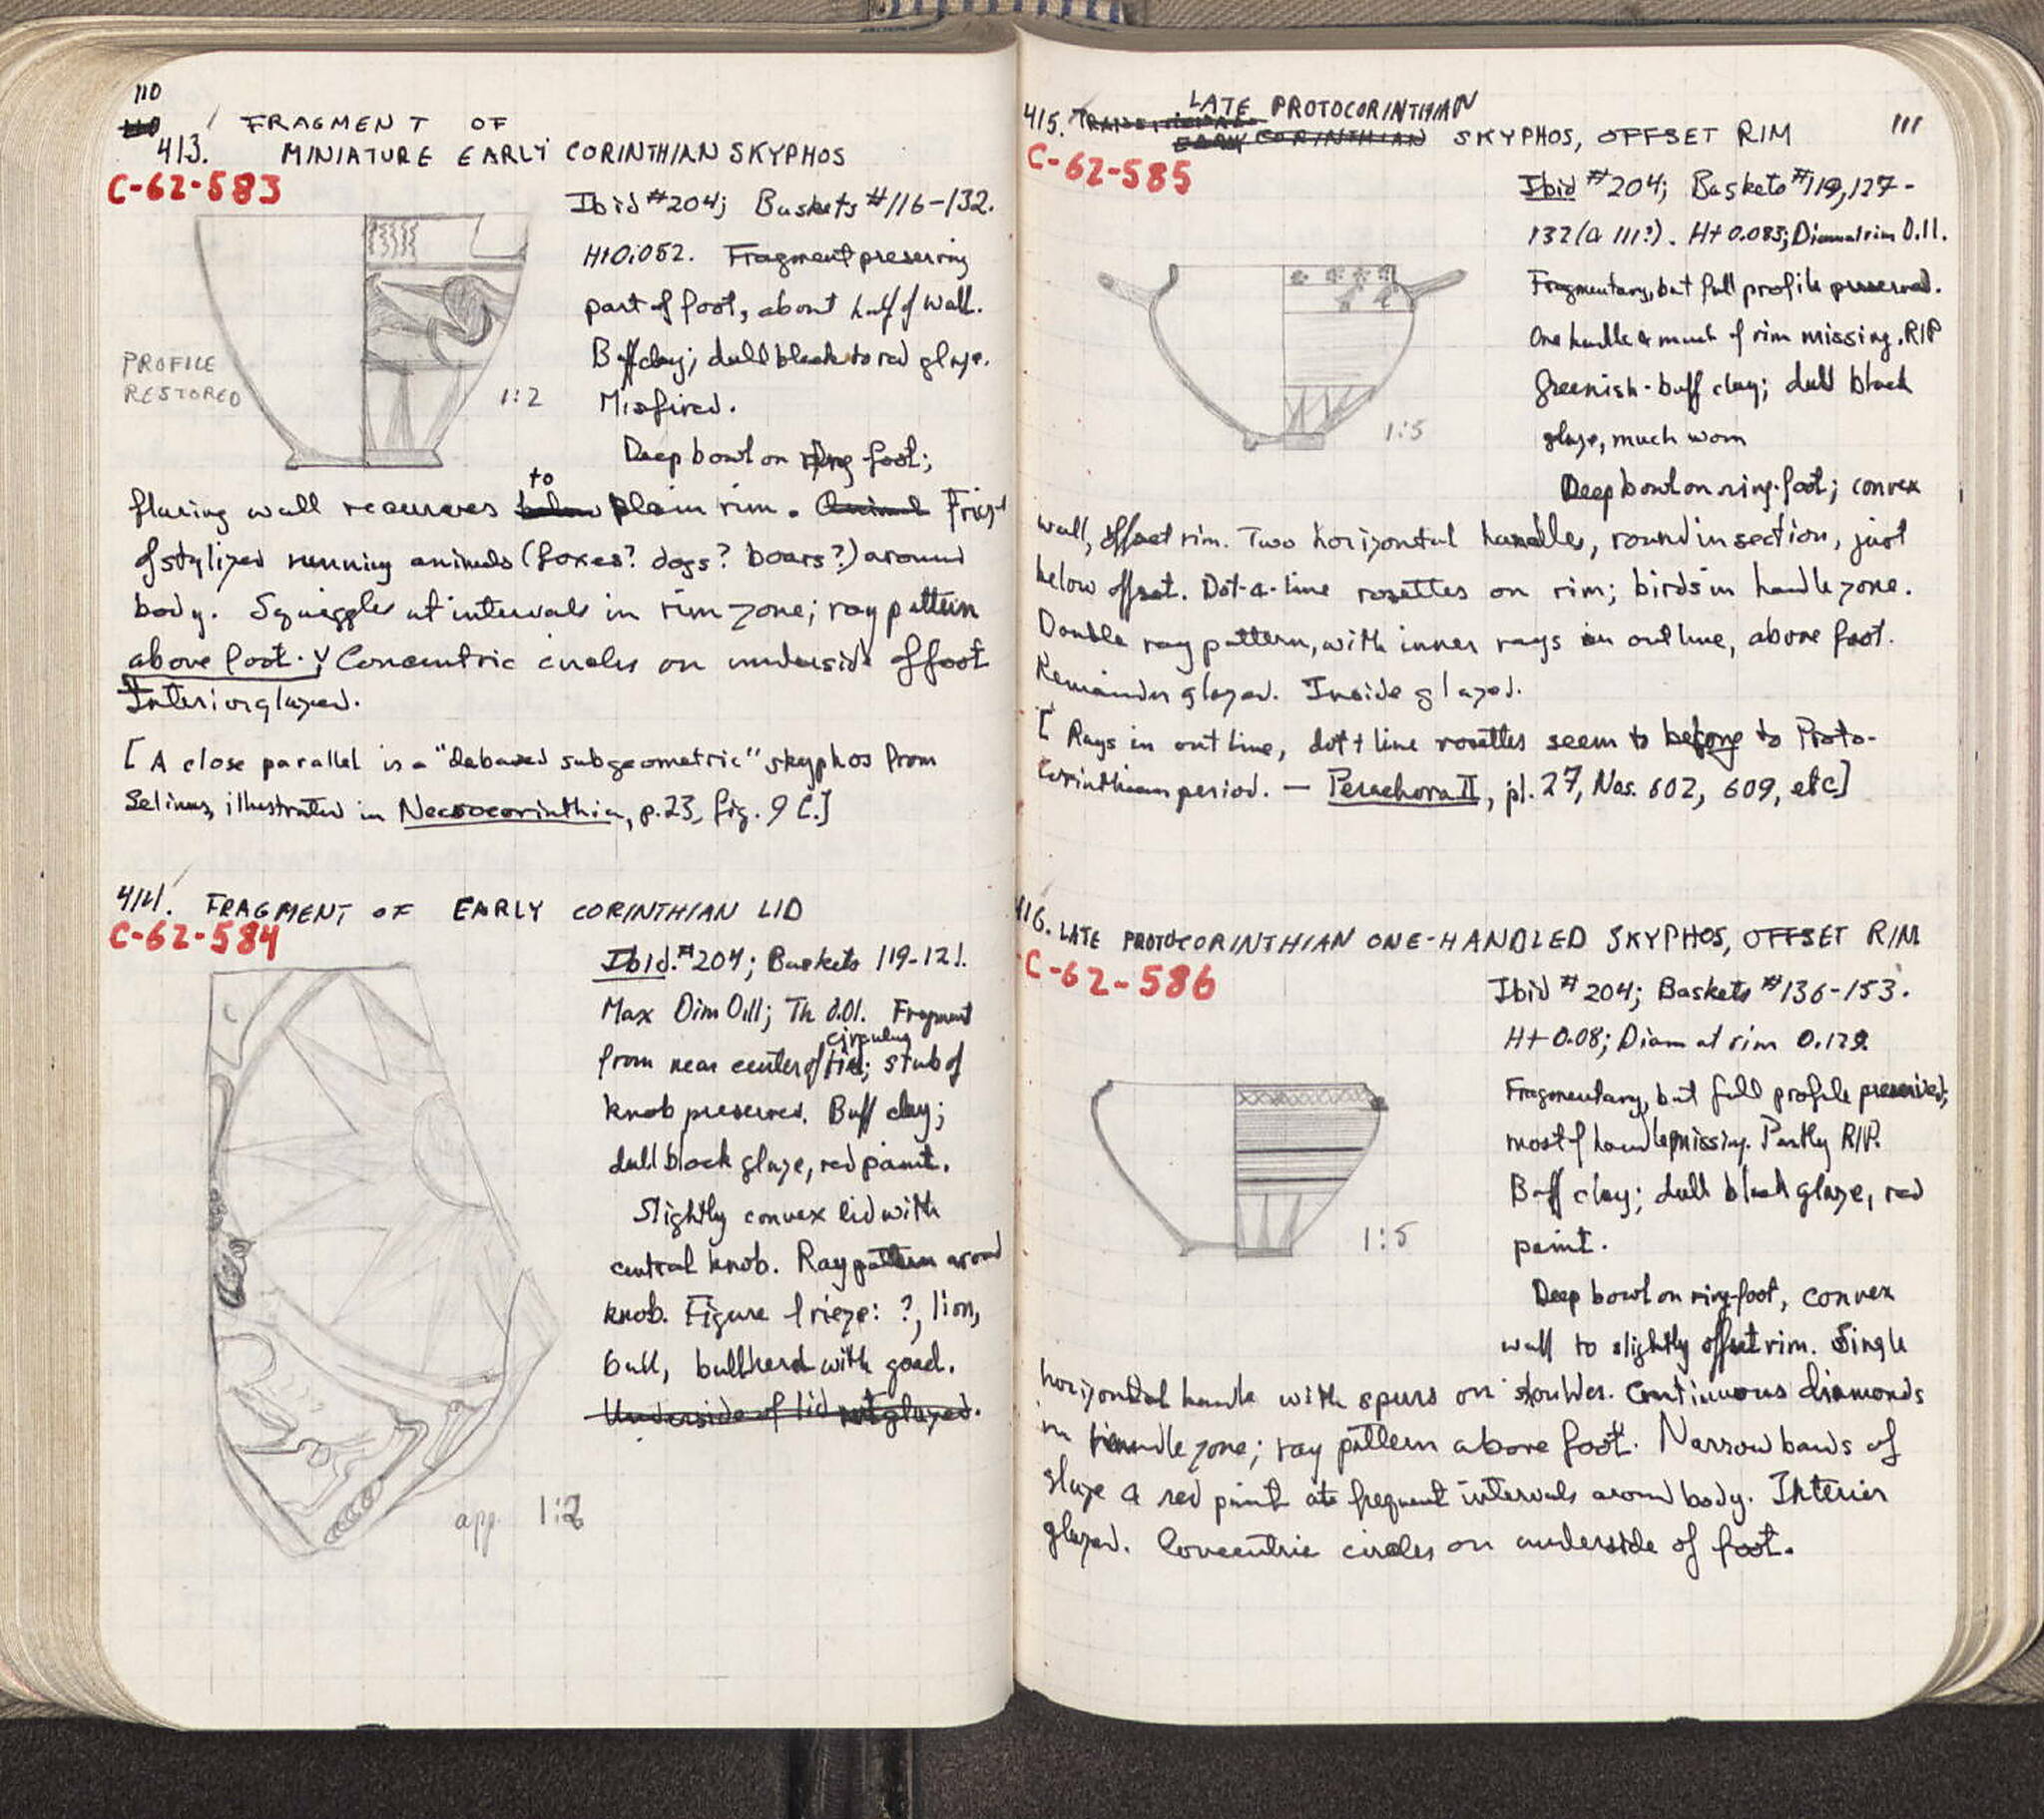 110
413. FRAGMENT OF
MINIATURE EARLY CORINTHIAN SKYPHOS
C-62-583
Ibid #204; Baskets #116-132.
Ht 0.052. Fragment preserving
part of foot, about half of wall.
Buff clay; dull black to red glaze.
Misfired.
Deep bowl on ring foot;
PROFILE
RESTORED
1:2
flaring wall recurves to plain rim. Animal Frieze
of stylized running animals (foxes? dogs? boars?) around
body. Squiggles at intervals in rim zone; ray pattern
above foot. Concentric circles on underside of foot
Interior glazed.
[A close parallel is a "debased subgeometric" skyphos from
Selinus, illustrated in Necrocorinthia, p. 23, fig. 9 C.]
414. FRAGMENT OF EARLY CORINTHIAN LID
C-62-584
Ibid. #204; Baskets 119-121.
Max Dim 0.11; Th 0.01. Fragment
from near center of circular lid; stub of
knob preserved. Buff clay;
dull black glaze, red paint.
Slightly convex lid with
central knob. Ray pattern around
knob. Figure frieze: ?, lion,
bull, bullherd with goad.
Underside of lid not glazed.
app. 1:2
111
415. TRANSITIONAL LATE PROTOCORINTHIAN
EARLY CORINTHIAN SKYPHOS, OFFSET RIM
C-62-585
Ibid #204; Baskets #119, 127-
132 (& 111?). Ht 0.085; Diam at rim 0.11.
Fragmentary, but full profile preserved.
One handle & much of rim missing. RIP
Greenish-buff clay; dull black
glaze, much worn
Deep bowl on ring-foot; convex
1:5
wall, offset rim. Two horizontal handles, round in section, just
below offset. Dot-&-line rosettes on rim; birds in handle zone.
Double ray pattern, with inner rays in outline, above foot.
Remainder glazed. Inside glazed.
[Rays in outline, dot + line rosettes seem to belong to Proto-
corinthian period. — Perachora II, pl. 27, Nos. 602, 609, etc]
416. LATE PROTOCORINTHIAN ONE-HANDLED SKYPHOS, OFFSET RIM
C-62-586
Ibid #204; Baskets #136-153.
Ht 0.08; Diam at rim 0.129.
Fragmentary, but full profile preserved;
most of handle missing. Partly RIP.
Buff clay; dull black glaze, red
paint.
Deep bowl on ring-foot, convex
wall to slightly offset rim. Single
1:5
horizontal handle with spurs on shoulder. Continuous diamonds
in handle zone; ray pattern above foot. Narrow bands of
glaze & red paint at frequent intervals around body. Interior
glazed. Concentric circles on underside of foot.